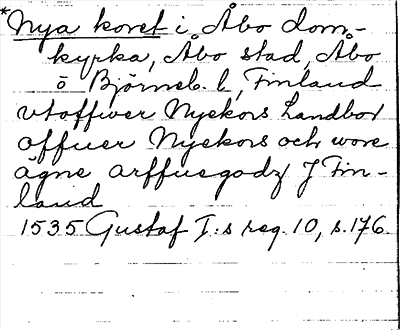 *Nya koret i Åbo dom-
kyrka, Åbo stad, Åbo
o Björneb. l, Finland
vtoffwer Nyekors Landbor
offuer Nyekors och wore
ägne arffuegodz J Fin-
land
1535 Gustaf I:s reg. 10, s. 176.